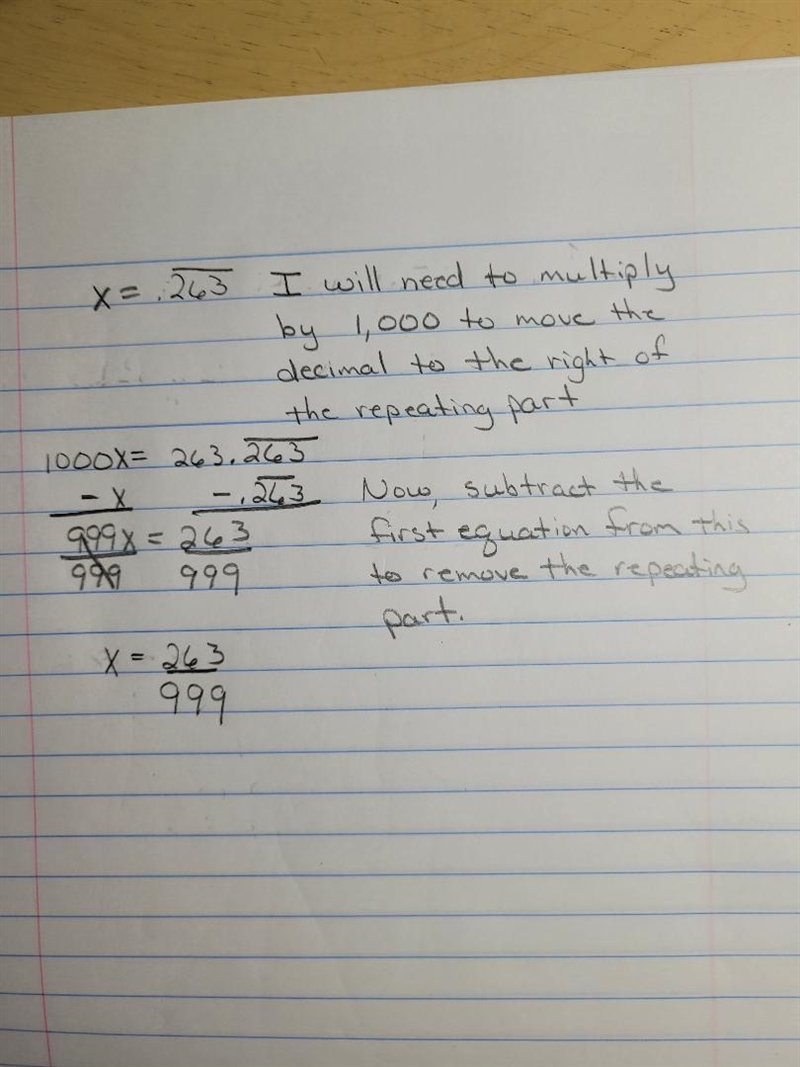 x = .2̅6̅3̅ I will need to multiply
by 1,000 to move the
decimal to the right of
the repeating part
1000x = 263.2̅6̅3̅
- x - .2̅6̅3̅ Now, subtract the
999x = 263 first equation from this
999 999 to remove the repeating
part.
x = 263
999